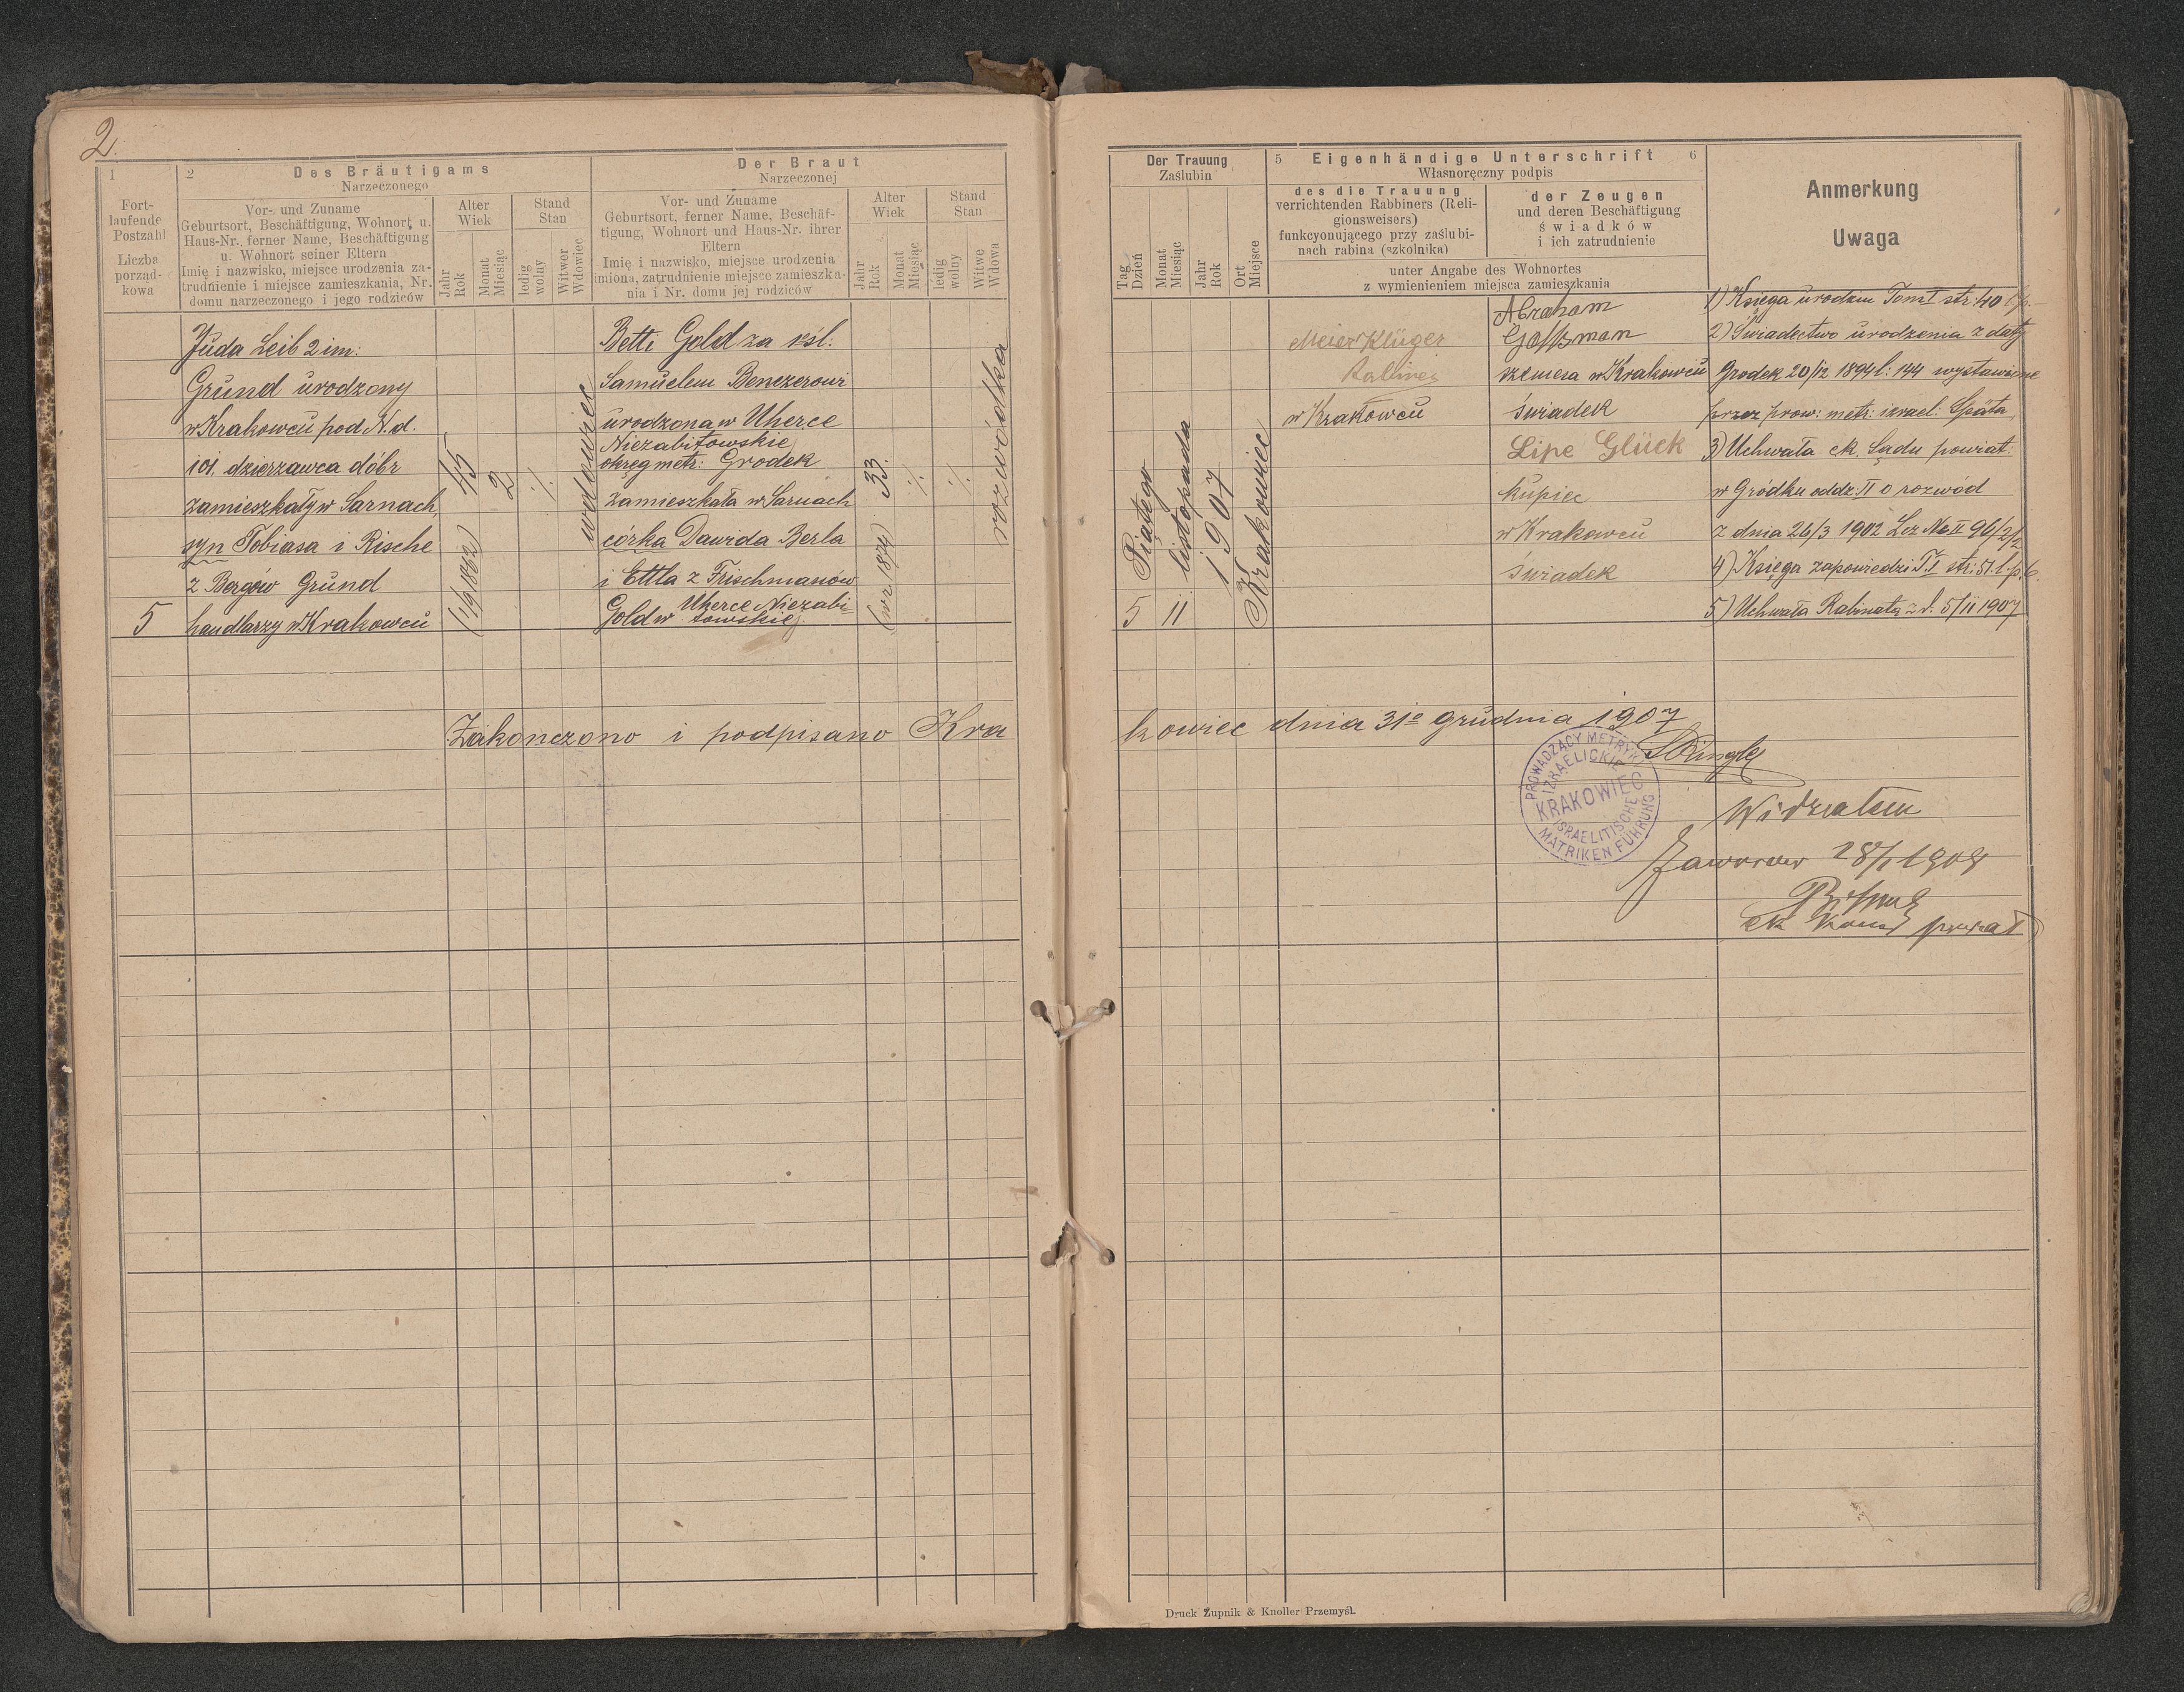 2.
1
Fort-
laufende
Postzahl
Liczba
porząd-
kowa
2
Des Bräutigams
Narzeczonego
Vor- und Zuname
Geburtsort, Beschäftigung, Wohnort, u.
Haus-Nr., ferner Name, Beschäftigung
u. Wohnort seiner Eltern
Imię i nazwisko, miejsce urodzenia za-
trudnienie i miejsce zamieszkania, Nr.
domu narzeczonego i jego rodziców
Alter
Wiek
Jahr
Rok
Monat
Miesiąc
Stand
Stan
ledig
wolny
Witwer
Wdowiec
Der Braut
Narzeczonej
Vor- und Zuname
Geburtsort, ferner Name, Beschäf-
tigung, Wohnort und Haus-Nr. ihrer
Eltern
Imię i nazwisko, miejsce urodzenia
imiona, zatrudnienie miejsce zamieszka-
nia i Nr. domu jej rodziców
Alter
Wiek
Jahr
Rok
Monat
Miesiąc
Stand
Stan
ledig
wolny
Witwe
Wdowa
Juda Leib 2 im:
Grund urodzony
w Krakowcu pod N. d.
101, dzierzawca dóbr
zamieszkały w Sarnach,
syn Tobiasa i Rische
z Bergów Grund
5
handlarzy w Krakowcu
45
(1/9 1862)
2
·/.
wdowiec
Betti Gold za
Samuelem Benczerowi
urodzona w Uherce
Niezabitowskie
okręg metr: Grodek
zamieszkała w Sarnach
córka Dawida Berla
i Ettla z Frischmanów
Gold w Uherce Niezabi-
towskie
33
(w r. 1874)
·/.
·/.
rozwódka
Der Trauung
Zaślubin
Tag
Dzień
Monat
Miesiąc
Jahr
Rok
Ort
Miejsce
5 Eigenhändige Unterschrift 6
Własnoręczny podpis
des die Trauung
verrichtenden Rabbiners (Reli-
gionsweisers)
funkcyonującego przy zaślubi-
nach rabina (szkolnika)
der Zeugen
und deren Beschäftigung
świadków
i ich zatrudnienie
unter Angabe des Wohnortes
z wymienieniem miejsca zamieszkania
Anmerkung
Uwaga
Piątego
5
listopada
11
1907
Krakowiec
Meier Klüger
Rabbiner
w Krakowcu
Abraham
Goßsman
szemesa w Krakowcu
świadek
Lipe Glück
kupiec
w Krakowcu
świadek
1) Księga urodzin Tom I str: 40
2) Świadectwo urodzenia z daty
Grodek 20/12 1894 l: 144 wystawione
przez prow: metr: izrael: Späta
3) Uchwała ck. Sądu powiat:
w Gródku oddz: II o rozwód
z dnia 26/3 1902 Lcz Nc II 96/2/2
4) Księga zapowiedzi T. I str: 51. l. p. 6.
5) Uchwała Rabinata z d. 5/11 1907
Zakonczono i podpisano Kra
kowiec dnia 31go grudnia 1907
PROWADZĄCY METRYKI
IZRAELICKIE
KRAKOWIEC
ISRAELITISCHE
MATRIKEN FÜHRUNG
Widziałem
Jaworow 28/1 1908
ck powiat
Druck Żupnik & Knoller Przemyśl.